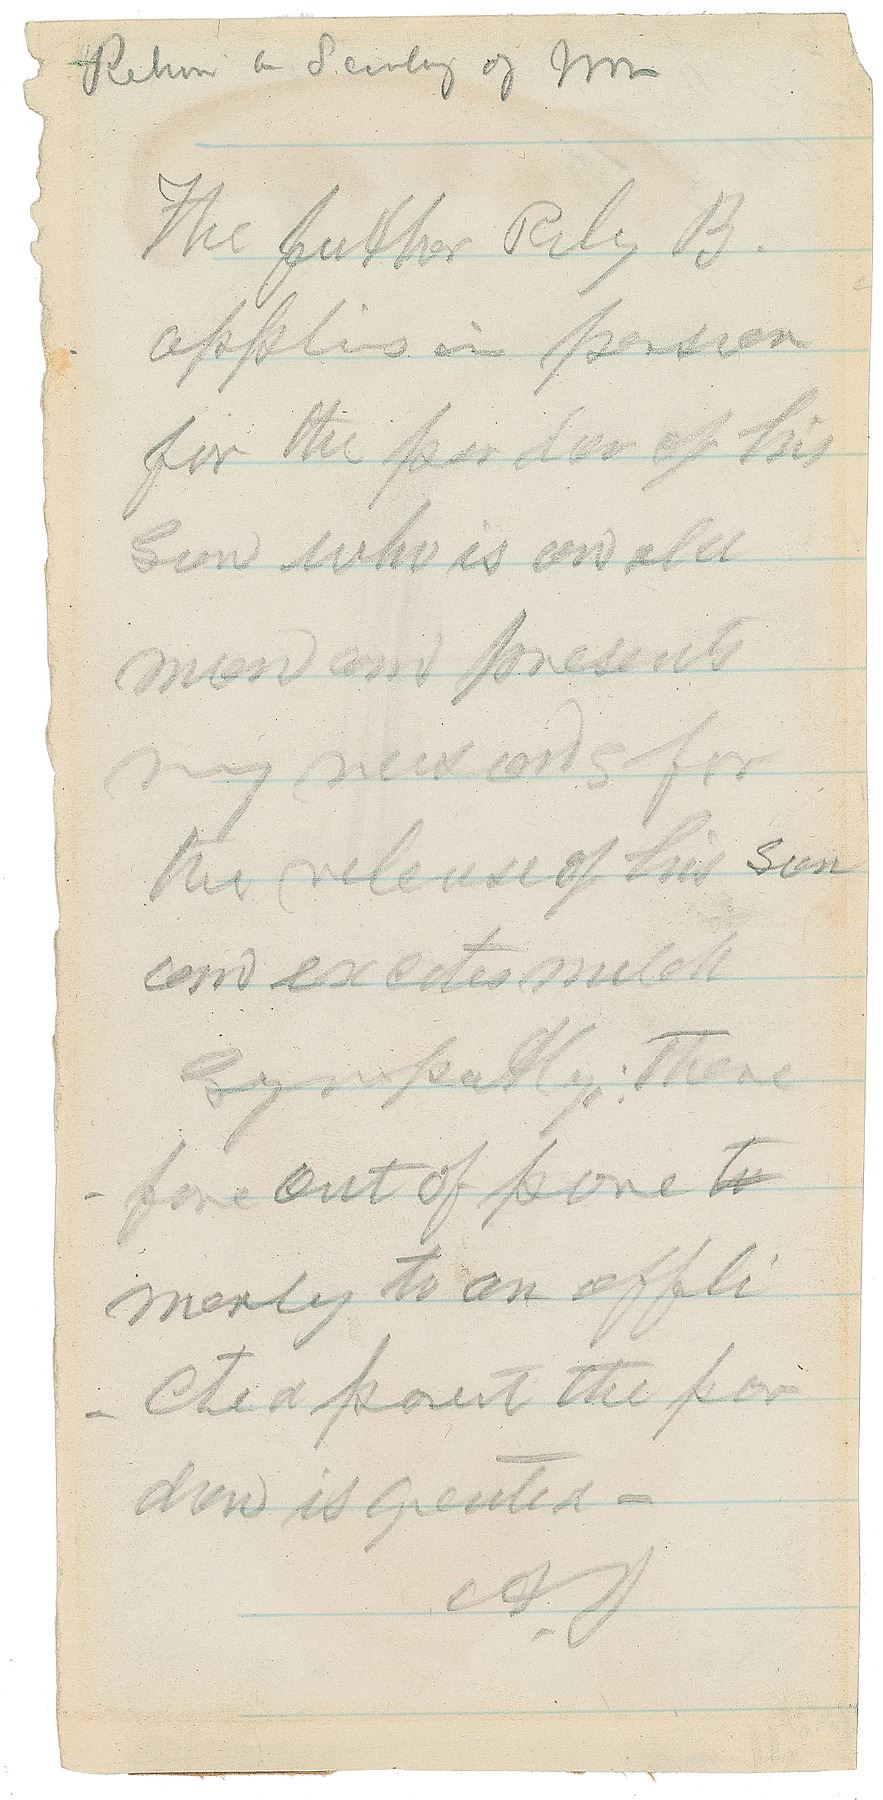 Return to Secretary of War
The father Rily B.
applies in person
for the pardon of his
Son who is an old
man and presents
my new ands for
the release of his son
and excites much
Sympathy: There
- fore out of pore to
mercy to an affli
- cted parent the par
don is granted -
A. J